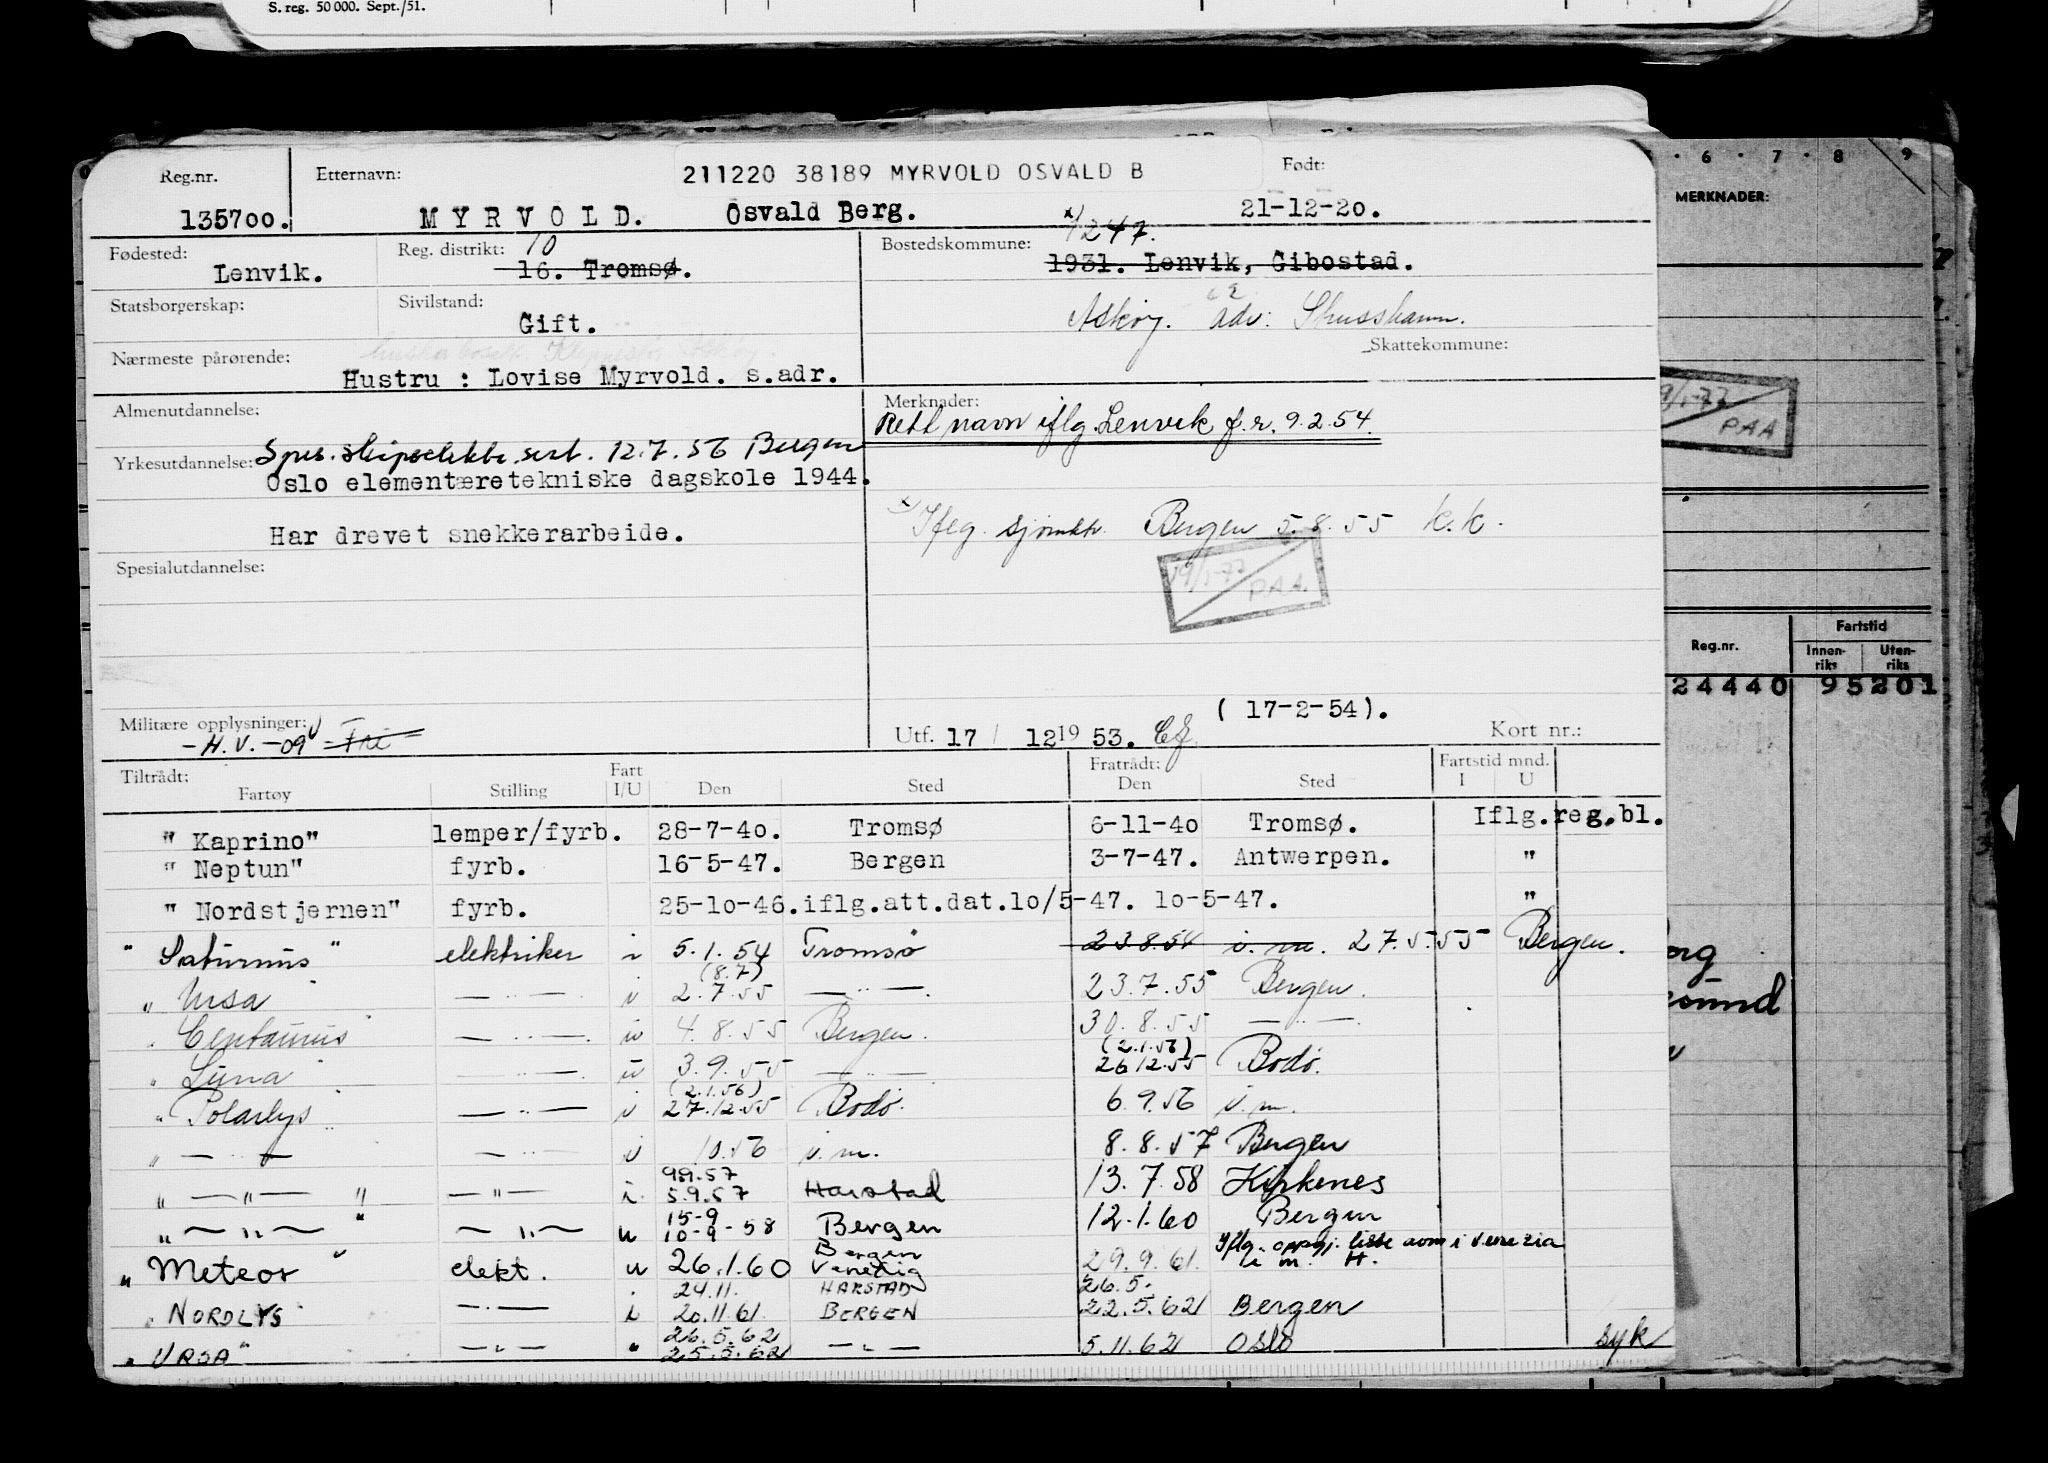 S. reg. 50 000. Sept./51.
Reg.nr. Etternavn: 211220 38189 MYRVOLD OSVALD B Født:
135700. MYRVOLD. Osvald Berg. 21-12-20.
Fødested: Lenvik. Reg. distrikt: 10 16. Tromsø. Bostedskommune: x) 1247. 1931. Lenvik, Gibostad.
Statsborgerskap: Sivilstand: Gift. Askøy. adr:
Skattekommune:
Nærmeste pårørende:
Hustru : Lovise Myrvold. s.adr.
Almenutdannelse: Merknader:
Rett navn iflg. Lenvik f.r. 9.2.54.
Yrkesutdannelse: Spes. skipselektr. sert. 12.7.56 Bergen
Oslo elementæretekniske dagskole 1944.
x) Iflg. sjømktr. Bergen 5.8.55 K.K.
Har drevet snekkerarbeide.
19/1-77 PAA.
Spesialutdannelse:
( 17-2-54).
Militære opplysninger: -H.V.-09 Fri
Utf. 17/ 12 19 53. Kort nr.:
Tiltrådt: Fart Fratrådt: Fartstid mnd.
Fartøy Stilling I/U Den Sted Den Sted I U
" Kaprino" lemper/fyrb. 28-7-40. Tromsø 6-11-40 Tromsø. Iflg.reg.bl.
" Neptun" fyrb. 16-5-47. Bergen 3-7-47. Antwerpen. "
" Nordstjernen" fyrb. 25-10-46.iflg.att.dat.10/5-47. 10-5-47. "
" Saturnus " elektriker i 5.1.54 Tromsø 23.8.54 i.m. 27.5.55 Bergen.
(8.7)
" Ursa —"— i 2.7.55 —"— 23.7.55 Bergen.
" Centaurus —"— u 4.8.55 Bergen. 30.8.55 —"—
(2.1.56)
" Luna —"— u 3.9.55 —"— 26.12.55 Bodö.
(2.1.56)
" Polarlys —"— i 27.12.55 Bodö. 6.9.56 i.m.
" —"— —"— i 10.56 i.m. 8.8.57 Bergen
9.9.57
" —"— " —"— i 5.9.57 Harstad 13.7.58 Kirkenes
15-9
" —"— " —"— u 10-9-58 Bergen 12.1.60 Bergen
Bergen Iflg. oppgj. liste avm i Venezia
" Meteor " elekt. u 26.1.60 Venedig 29.9.61 i m. H.
24.11. HARSTAD 26.5.
" NORDLYS —"— i 20.11.61 BERGEN 22.5.62 Bergen
26.5.62
" URSA " —"— " 25.5.62 —"— 5.11.62 Oslo syk
6 · 7 · 8 9
MERKNADER:
19/1-77
PAA
Reg.nr. Fartstid
Innen-riks Uten-riks
24440 95201